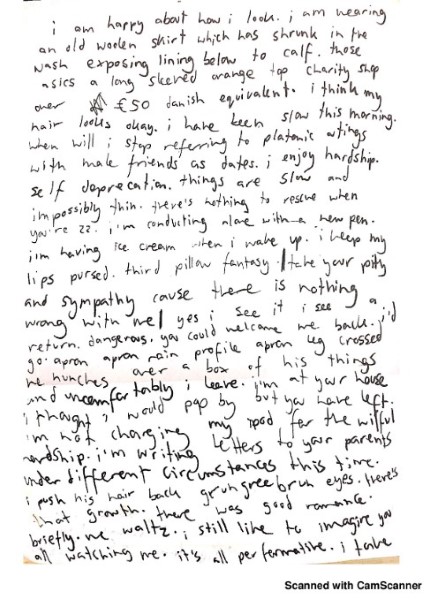 i am happy about how i look. i am wearing
an old woolen skirt which has shrunk in the
wash exposing lining below to calf. those
asics a long sleeved orange top charity shop
over €50 danish equivalent. i think my
hair looks okay. i have been slow this morning.
when will i stop referring to platonic outings
with male friends as dates. i enjoy hardship.
self deprecation. things are slow and
impossibly thin. there's nothing to rescue when
you're 22. i'm conducting alone with a new pen.
i'm having ice cream when i wake up. i keep my
lips pursed. third pillow fantasy. / take your pity
and sympathy cause there is nothing
wrong with me / yes i see it i see a
return. dangerous. you could welcome me back. i'd
go. apron apron rain profile apron leg crossed
he hunches over a box of his things
and uncomfortably i leave. i'm at your house
i thought i would pop by but you have left.
i'm not charging my ipod for the wilful
hardship. i'm writing letters to your parents
under different circumstances this time.
i push his hair back eyes. there's
that growth. there was good romance.
briefly. we waltz. i still like to imagine you
all watching me. it's all performative. i take
Scanned with CamScanner